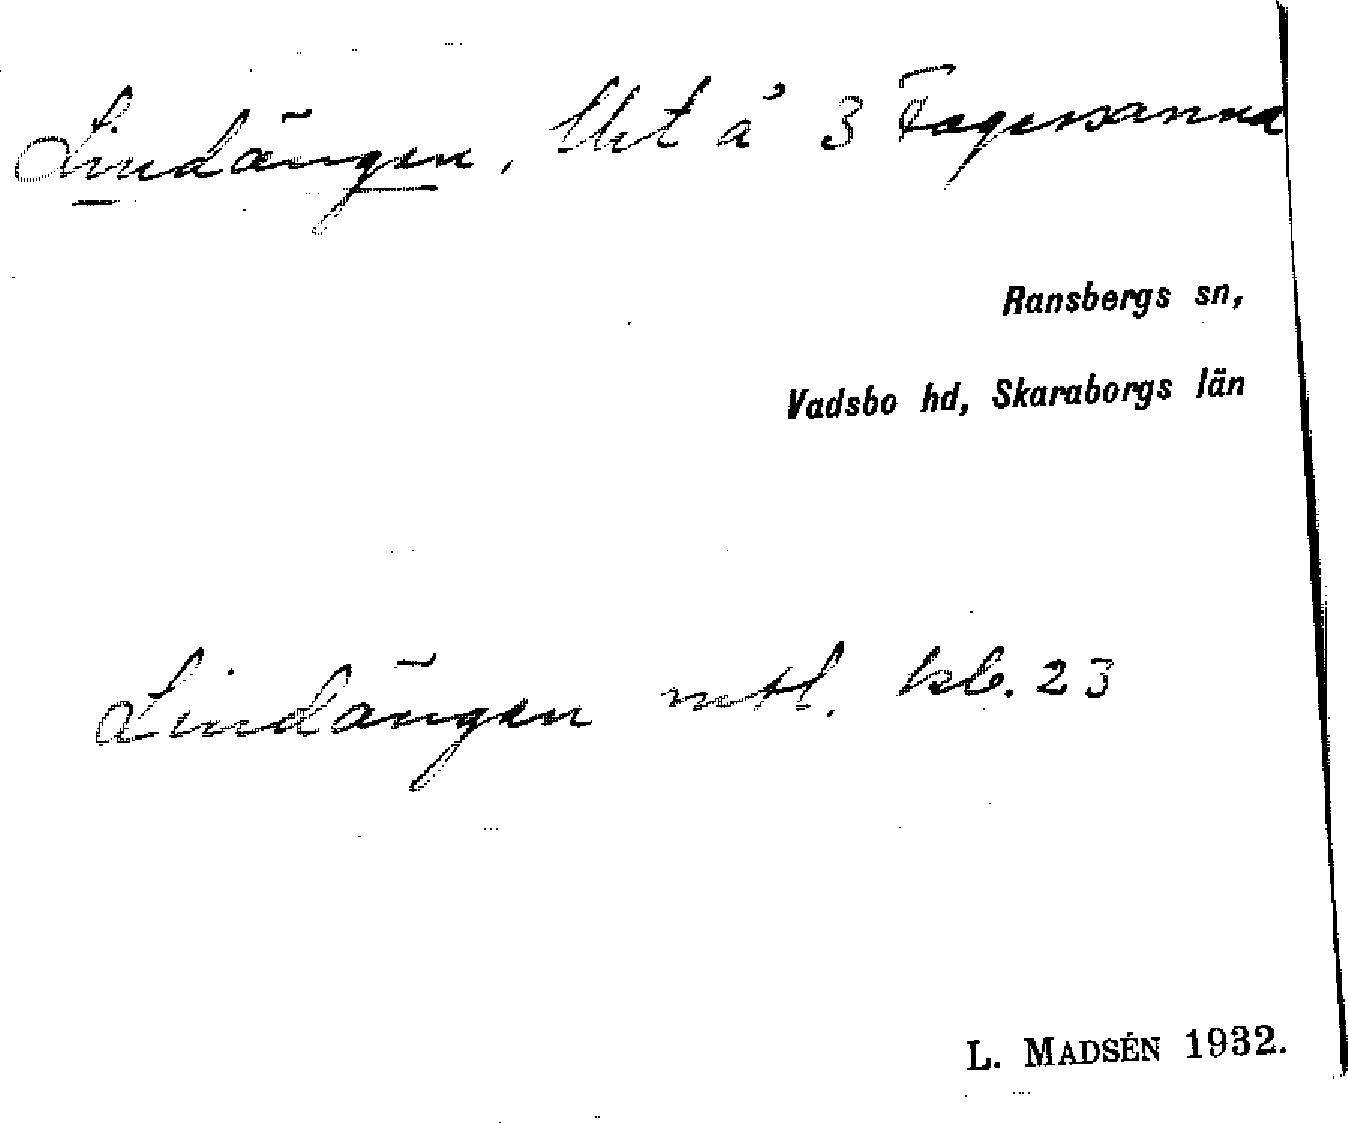 Lindängen, lht å 3 Fagersanna
Ransbergs sn,
Vadsbo hd, Skaraborgs län
Lindängen mtl. kb. 23
L. MADSÉN 1932.